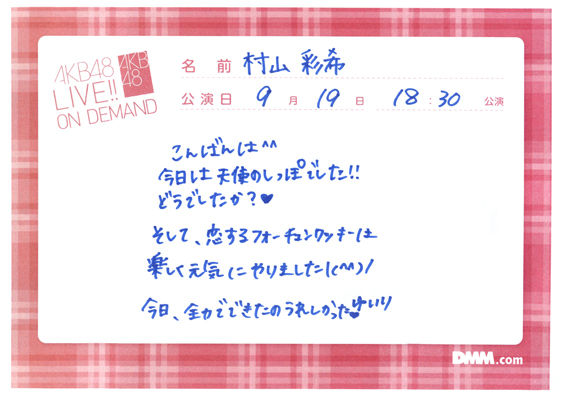 AKB48
LIVE!!
ON DEMAND
AKB
48
名前 村山 彩希
公演日 9月19日 18:30公演
こんばんは^^
今日は天使のしっぽでした!!
どうでしたか?♥
そして、恋するフォーチュンクッキーは
楽しく元気にやりました!(^^)/
今日、全力でできたのうれしかった♥ゆいり
DMM.com